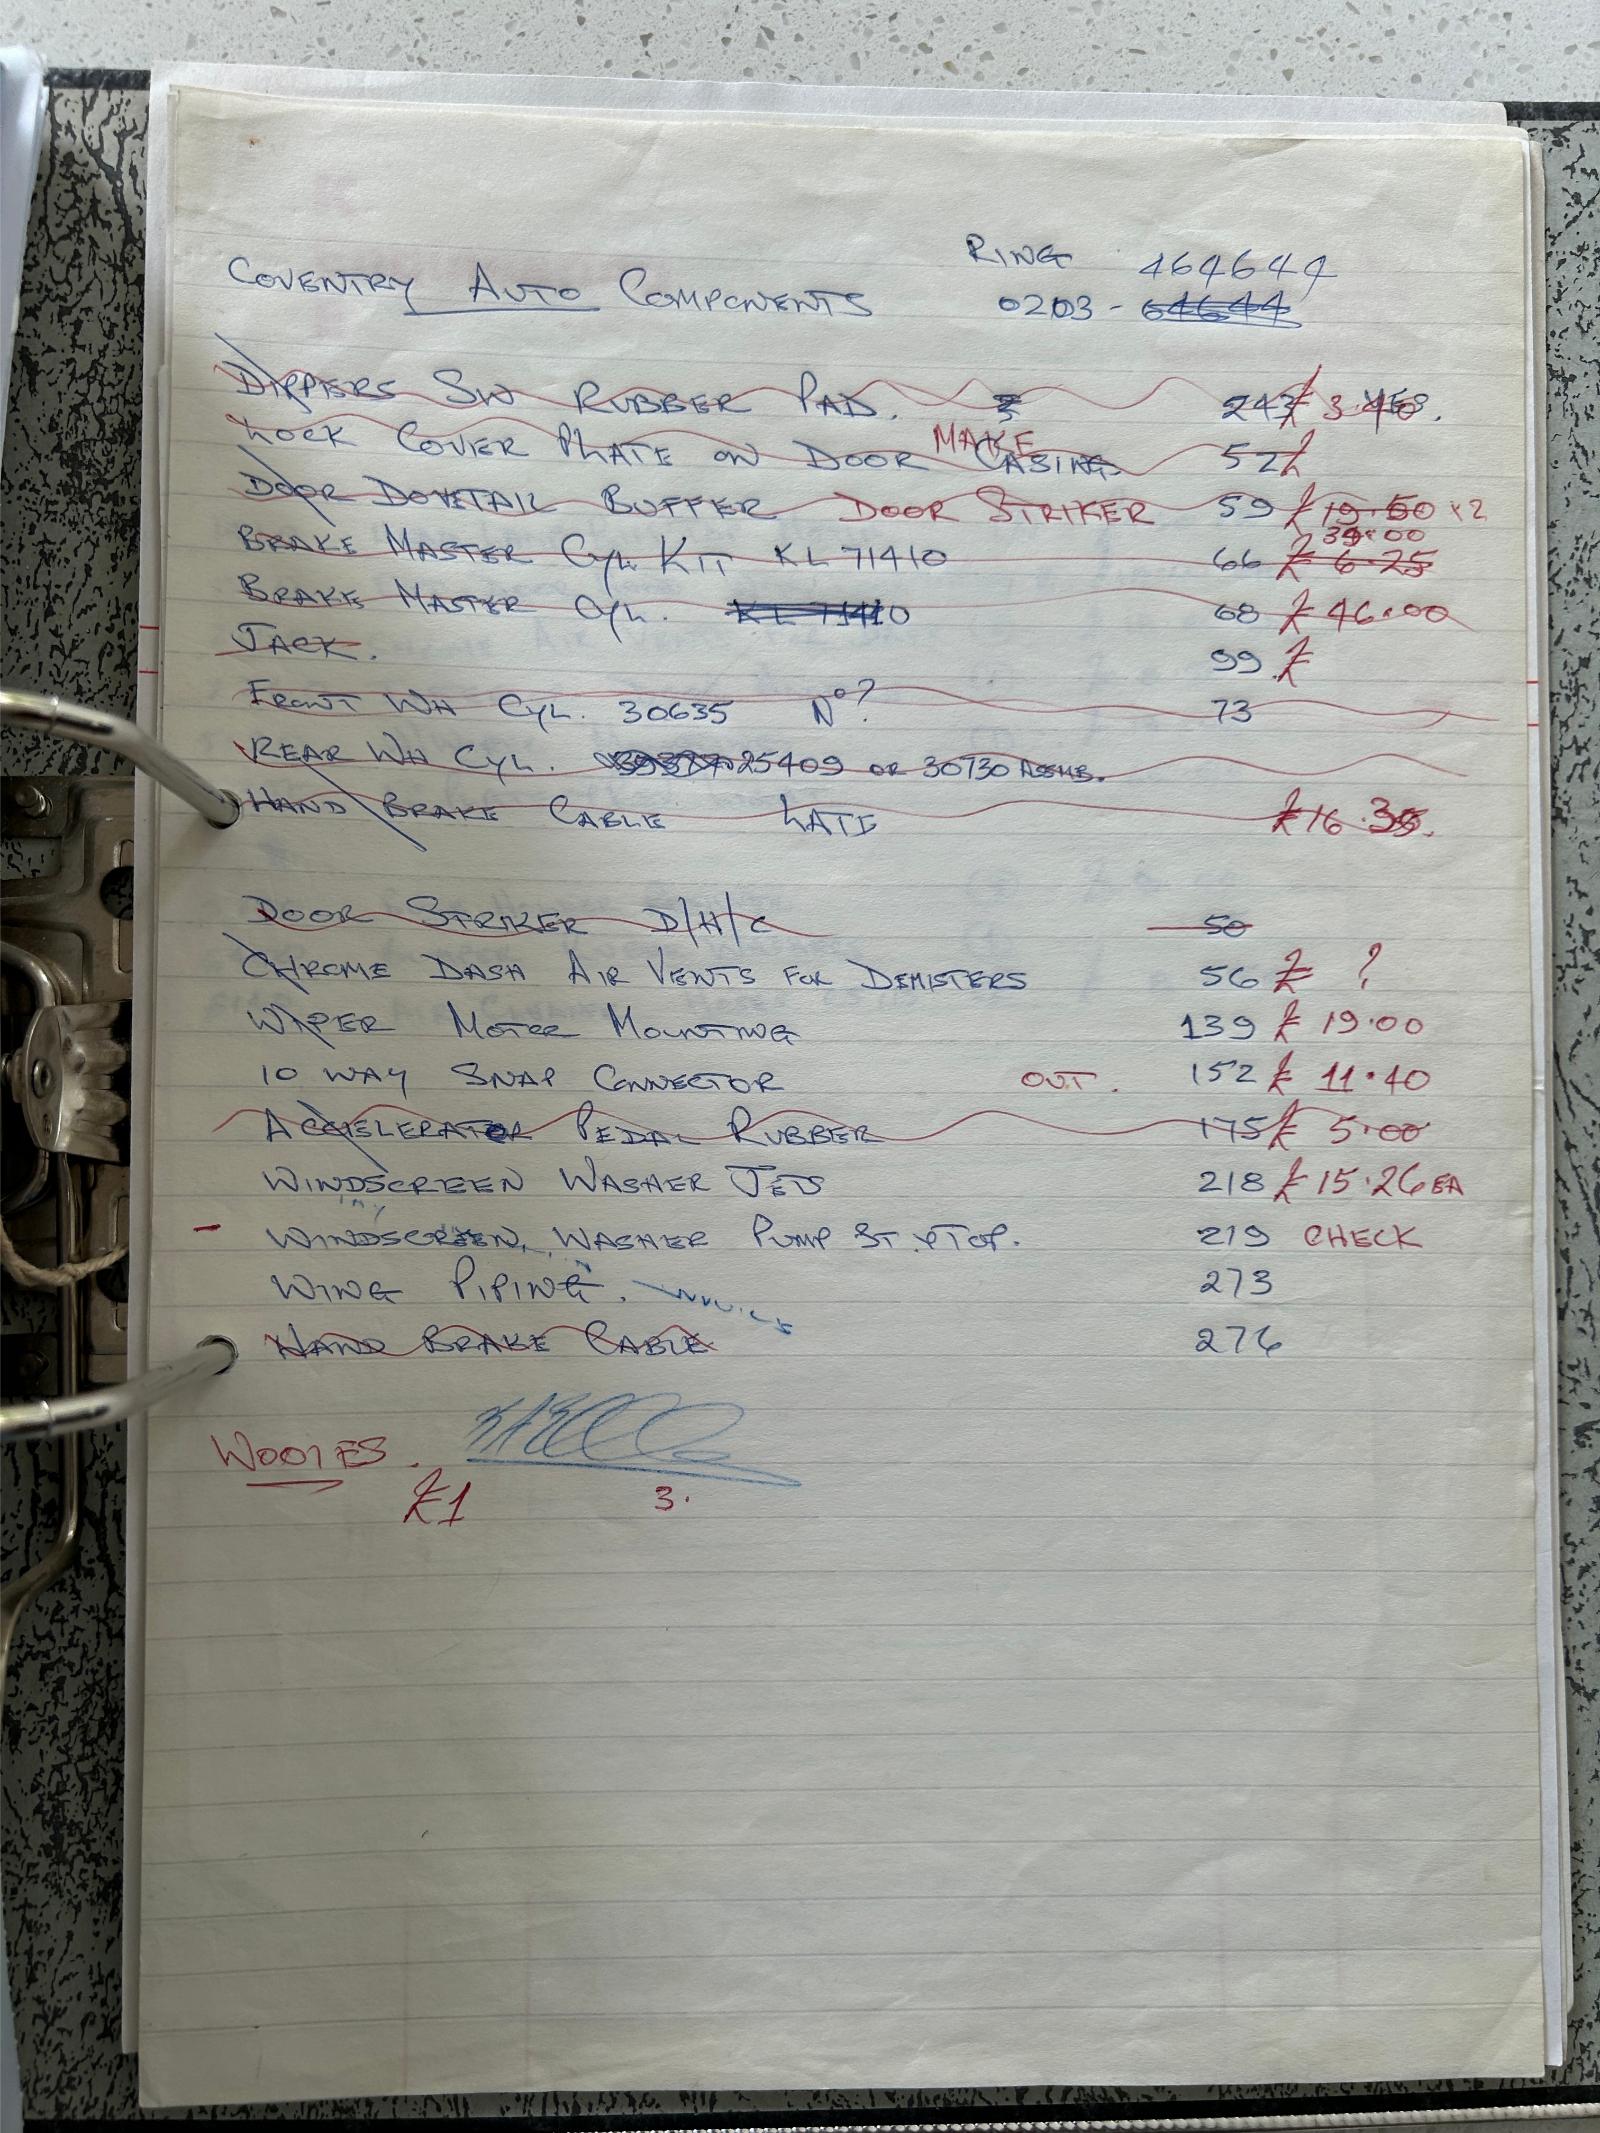 RING 464644
COVENTRY AUTO COMPONENTS 0203 - 64644
DIPPERS SW RUBBER PAD. 243 £ 3.40 YES.
LOCK COVER PLATE ON DOOR CASING MAKE 52 £
DOOR DOVETAIL BUFFER DOOR STRIKER 59 £ 19.50 x2
39.00
BRAKE MASTER CYL KIT KL 71410 66 £ 6.25
BRAKE MASTER CYL. KL 71410 68 £ 46.00
JACK. 99 £
FRONT WH CYL. 30635 No? 73
REAR WH CYL. 25409 OR 30730 ASSMB.
HAND BRAKE CABLE LATE £16.35.
DOOR STRIKER D/H/C 50
CHROME DASH AIR VENTS FOR DEMISTERS 56 £ ?
WIPER MOTOR MOUNTING 139 £ 19.00
10 WAY SNAP CONNECTOR OUT. 152 £ 11.40
ACCELERATOR PEDAL RUBBER 175 £ 5.00
WINDSCREEN WASHER JETS 218 £ 15.26 EA
- WINDSCREEN WASHER PUMP ST. & TOP. 219 CHECK
WING PIPING. 273
HAND BRAKE CABLE 276
WOOIES.
£1 3.